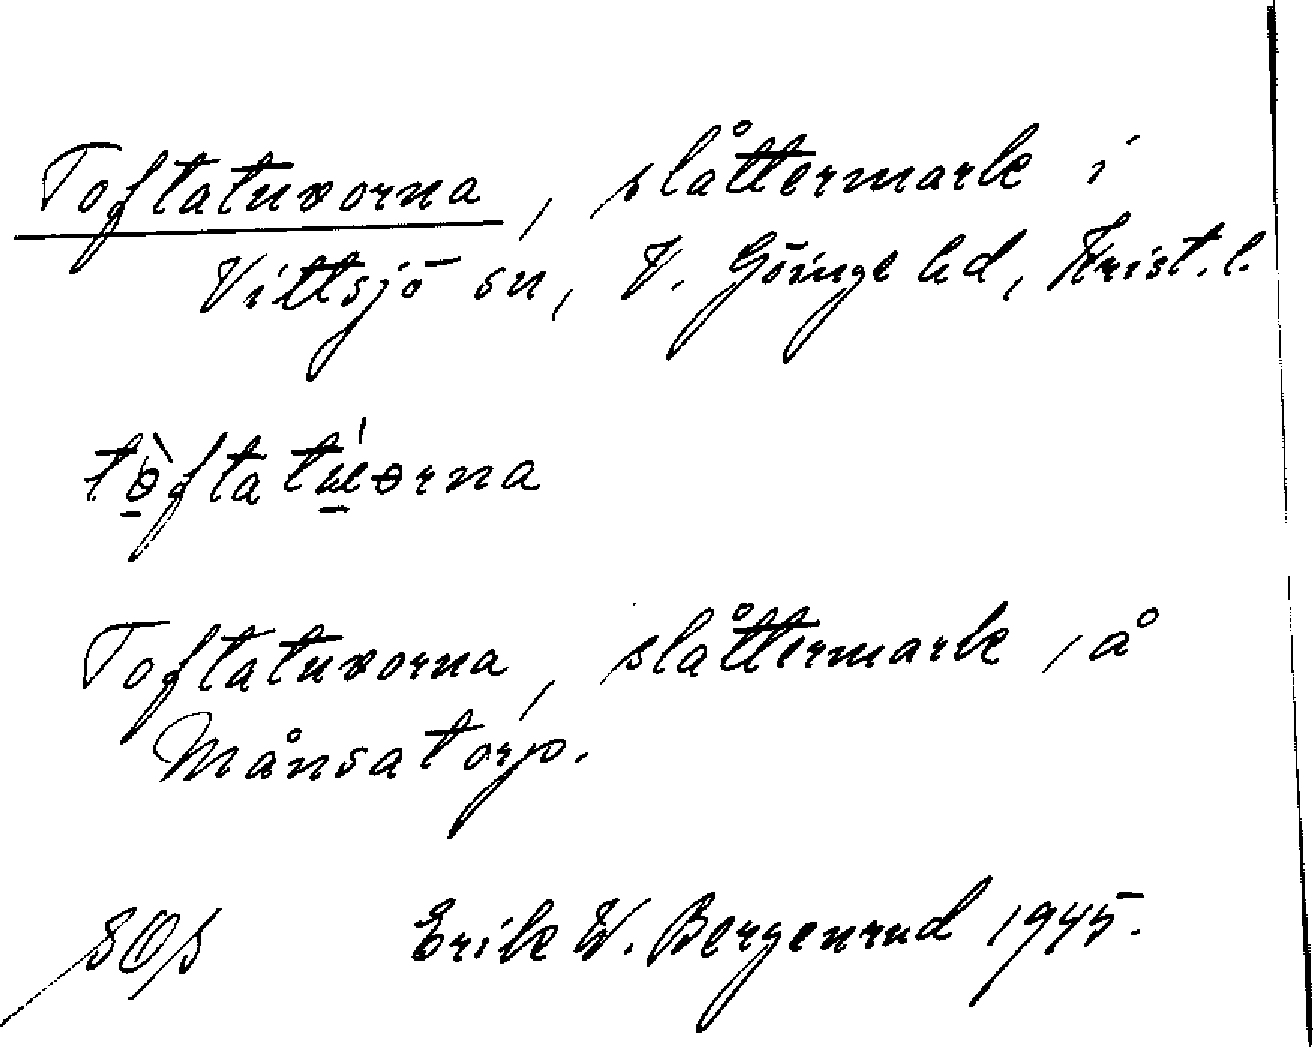 Toftatuvorna, slåttermark i
Vittsjö sn, V. Göinge hd, Krist. l.
Toftatuvorna, slåttermark, å
Månsatorp.
Erik W. Bergenrud 1945.